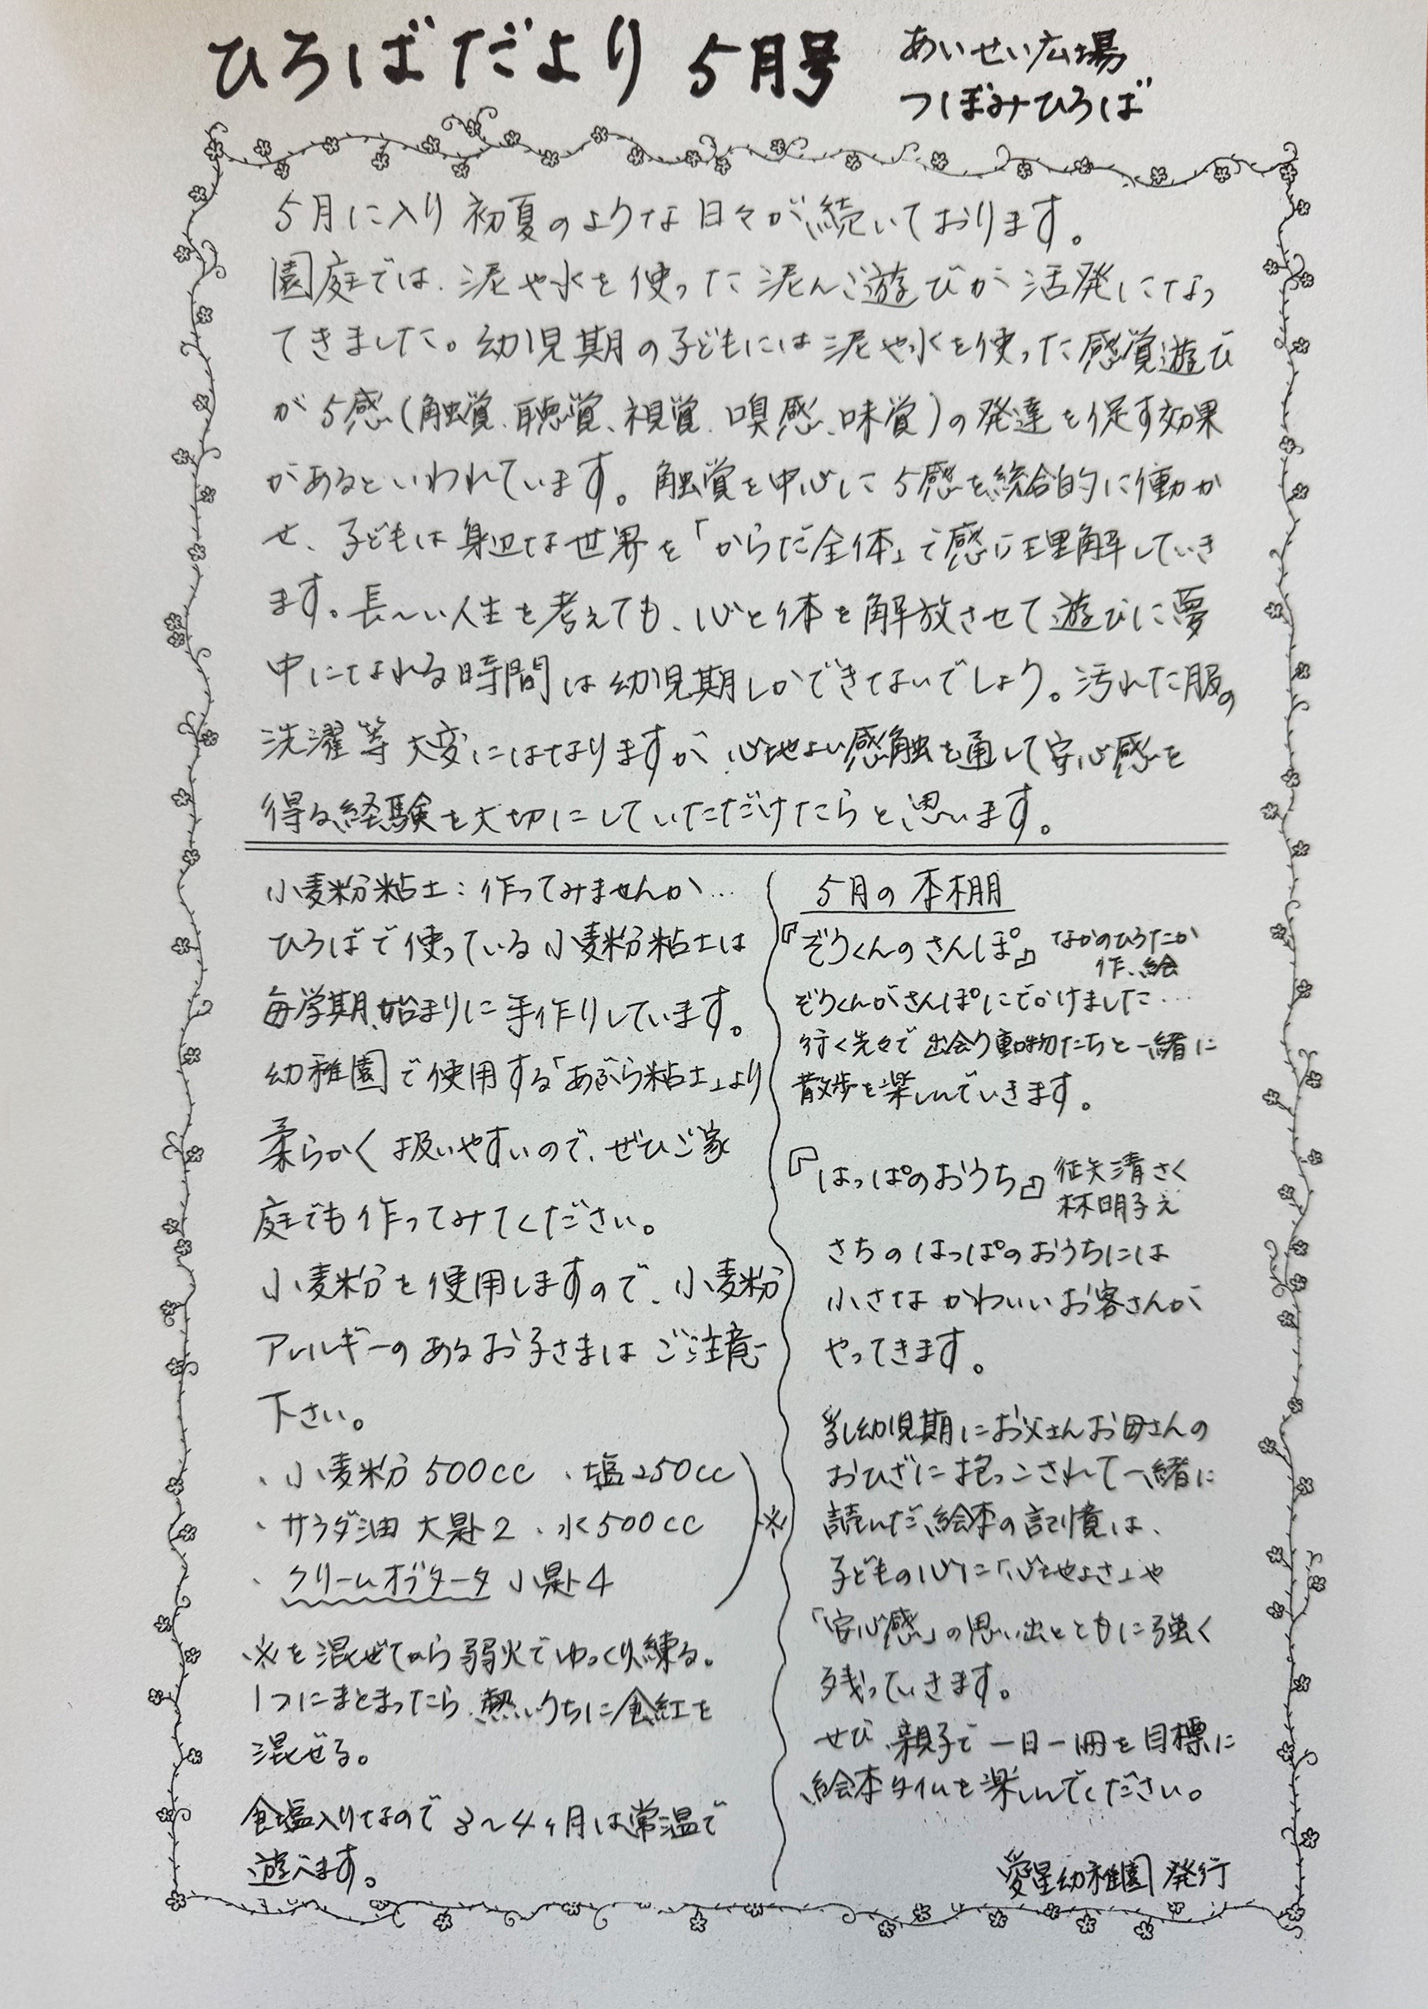 ひろばだより 5月号
あいせい広場
つぼみひろば
5月に入り 初夏のような日々が続いております。
園庭では、泥や水を使った泥んこ遊びが活発になっ
てきました。幼児期の子どもには泥や水を使った感覚遊び
が5感(触覚、聴覚、視覚、嗅感、味覚)の発達を促す効果
があるといわれています。触覚を中心に5感を統合的に働か
せ、子どもは身辺な世界を「からだ全体」で感じ理解していき
ます。長〜い人生を考えても、心と体を解放させて遊びに夢
中になれる時間は幼児期しかできないでしょう。汚れた服の
洗濯等大変にはなりますが、心地よい感触を通して安心感を
得る経験を大切にしていただけたらと思います。
小麦粉粘土:作ってみませんか…
ひろばで使っている小麦粉粘土は
毎学期、始まりに手作りしています。
幼稚園で使用する「あぶら粘土」より
柔らかく扱いやすいので、ぜひご家
庭でも作ってみてください。
小麦粉を使用しますので、小麦粉
アレルギーのあるお子さまはご注意
下さい。
・小麦粉500cc ・塩250cc
・サラダ油 大匙2 ・水500cc
・クリームオブタータ 小匙4
※
※を混ぜてから弱火でゆっくり練る。
1つにまとまったら、熱いうちに食紅を
混ぜる。
食塩入りなので3〜4ヶ月は常温で
遊べます。
5月の本棚
『ぞうくんのさんぽ』なかのひろたか
作、絵
ぞうくんがさんぽにでかけました…
行く先々で出会う動物たちと一緒に
散歩を楽しんでいきます。
『はっぱのおうち』征矢清さく
林明子え
さちのはっぱのおうちには
小さなかわいいお客さんが
やってきます。
乳幼児期にお父さんお母さんの
おひざに抱っこされて一緒に
読んだ、絵本の記憶は、
子どもの心に「心地よさ」や
「安心感」の思い出とともに強く
残っていきます。
ぜひ、親子で一日一冊を目標に
絵本タイムを楽しんでください。
愛星幼稚園 発行